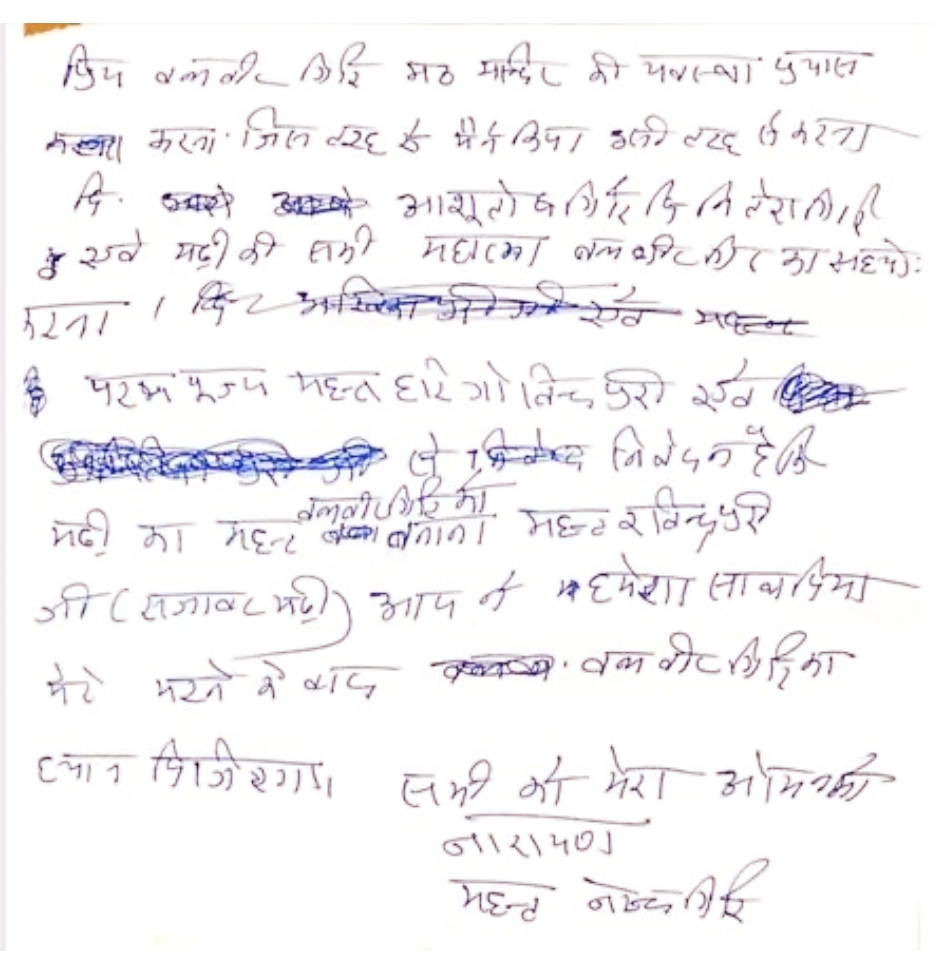 प्रिय बलवीर गिरि मठ मन्दिर की व्यवस्था प्रयास
करना जिस तरह से मैने किया इसी तरह से करना
आशुतोष गिरि नितेश गिरि
एवं मढ़ी की सभी महात्मा बलवीर गिरि का सहयोग
करना । एवं
परम पूज्य महन्त हरि गोविन्द पुरी एवं
से निवेदन है कि
मढ़ी का महन्त बलवीर गिरि को बनाना महन्त रविन्द्र पुरी
जी (सजावट मढ़ी) आप ने हमेशा साथ दिया
मेरे मरने के बाद बलवीर गिरि का
ध्यान दिजिएगा। सभी को मेरा ओम नमो
नारायण
महन्त नरेन्द्र गिरि